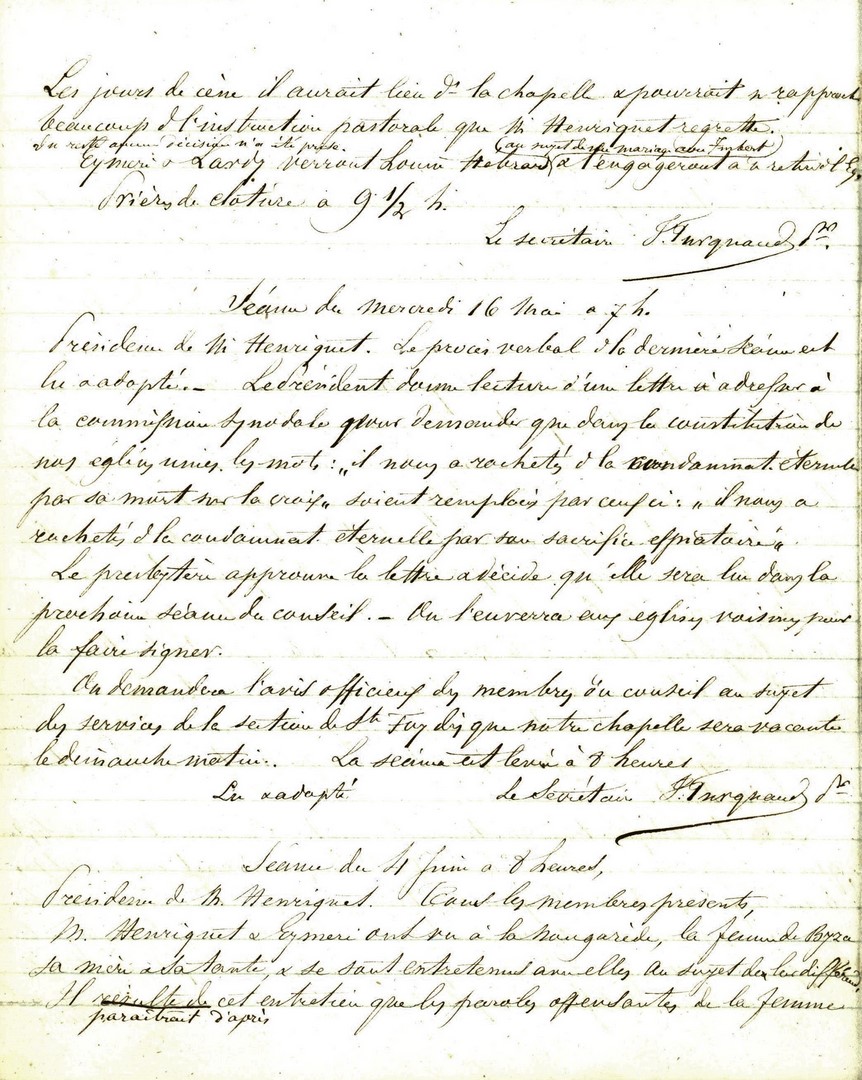 Les jours de cène il aurait lieu ds la chapelle & pourrait n rapproch
beaucoup d l'instruction pastorale que M Henriquet regrette.
Du reste aucune décision n'a été prise.
(au sujet de mariage avec Imbert)
Eymeri & Lardy verront Hebrard & l'engageront à
Prières de clôture a 9 1/2 h.
Le secrétaire J. Turquaud dr.
Séance du mercredi 16 Mai a 7 h.
Présidence de M Henriquet. Le procès verbal d la dernière séance est
lu & adopté. – Le Président donne lecture d'une lettre à adresser à
la commission synodale pour demander que dans la constitution de
nos églises unies les mots: „il nous a rachetés d la condamnat. éternelle
par sa mort sur la croix„ soient remplacés par ceux ci: „il nous a
rachetés d la condamnat. éternelle par son sacrifice expiatoire„
Le presbytère approuve la lettre & décide qu'elle sera lue dans la
prochaine séance du conseil. – On l'enverra aux églises voisines pour
la faire signer.
On demandera l'avis officieux des membres du conseil au sujet
des services de la section de Ste Foy dès que notre chapelle sera vacante
le dimanche matin. La séance est levée à 8 heures
Lu & adopté Le Secrétaire J. Turquaud dr.
Séance du 4 Juin a 8 heures,
Présidence de M. Henriquet. Tous les membres présents,
M. Henriquet & Eymeri ont vu à la Nougarède, la femme de
sa mère & sa tante, & se sont entretenus avec elles au sujet de différend,
Il résulte de cet entretien que les paroles offensantes de la femme
paraîtrait d'après